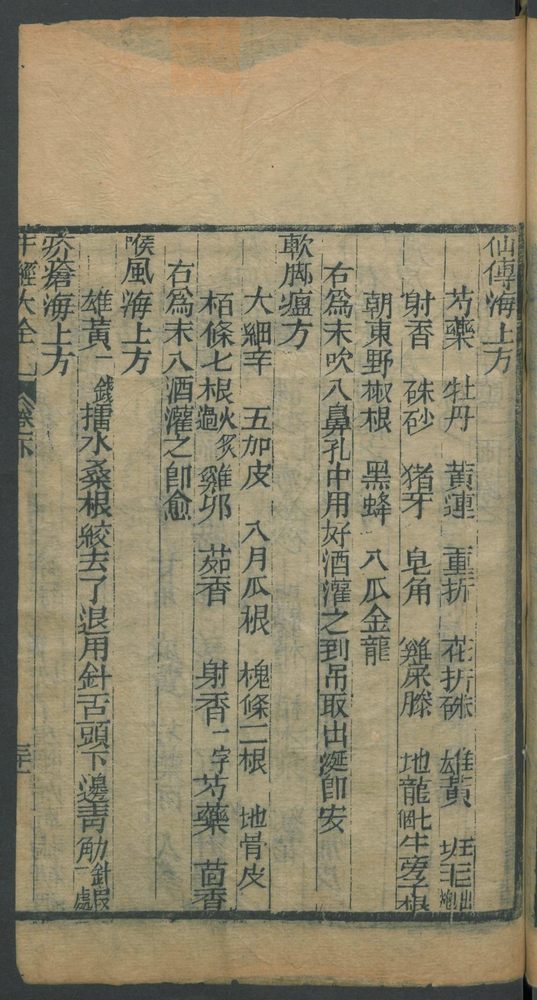 仙傳海上方
芍藥 牡丹 黃連 重折 花折硃 雄黃 班毛出炮
射香 硃砂 猪牙 皂角 雞屎滕 地龍七個 牛旁子根
朝東野椒根 黑蜂 八瓜金龍
右爲末吹入鼻孔中用好酒灌之到吊取出涎即安
軟脚瘟方
大細辛 五加皮 八月瓜根 槐條二根 地骨皮
栢條七根火炙過 雞卵 茹香 射香一字 芍藥 茴香
右爲末入酒灌之即愈
喉風海上方
雄黃一錢擂水桑根絞去了退用針舌頭下邊青觔針一處
疥瘡海上方
牛經大全 卷下